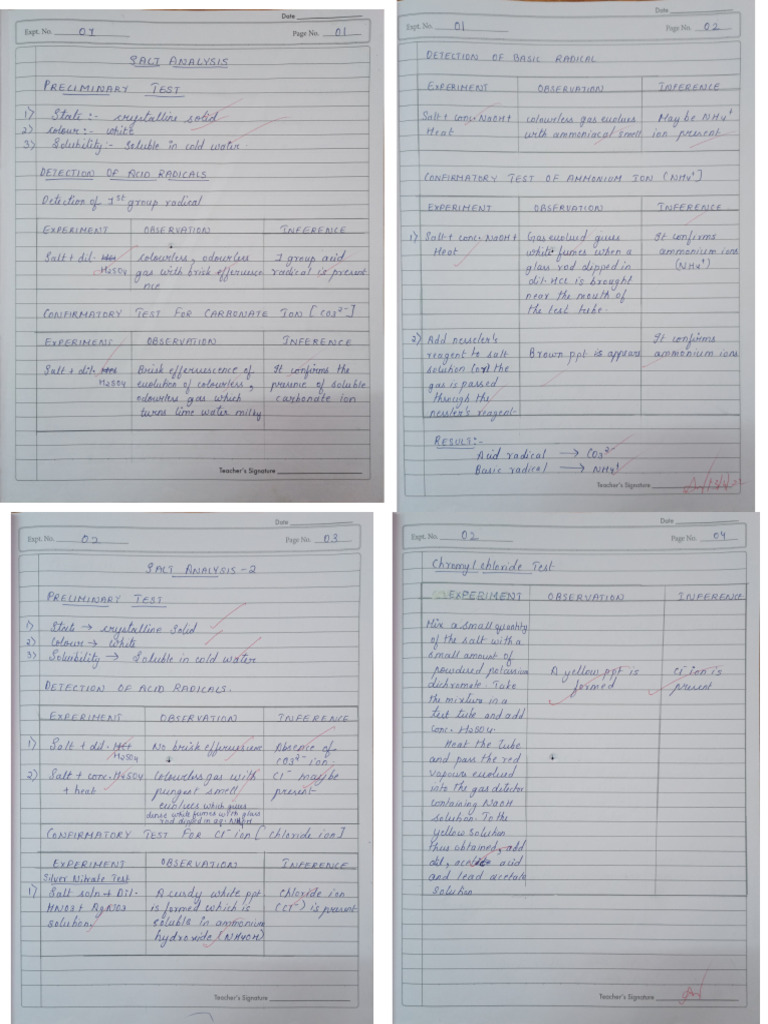 Date
Expt. No. 01
Page No. 01
SALT ANALYSIS
PRELIMINARY TEST
1) State:- crystalline solid
2) colour:- white
3) Solubility:- Soluble in cold water
DETECTION OF ACID RADICALS
Detection of 1st group radical
EXPERIMENT OBSERVATION INFERENCE
Salt + dil. HCl colourless, odourless I group acid
H2SO4 gas with brisk efferusce radical is present
nce
CONFIRMATORY TEST FOR CARBONATE ION [CO3²⁻]
EXPERIMENT OBSERVATION INFERENCE
Salt + dil. Brisk efferuscence of It confirms the
H2SO4 evolution of colourless, presence of soluble
odourless gas which carbonate ion
turns lime water milky
Teacher's Signature
Date
Expt. No. 01
Page No. 02
DETECTION OF BASIC RADICAL
EXPERIMENT OBSERVATION INFERENCE
Salt + conc. NaOH + colourless gas evolues Maybe NH4⁺
Heat with ammoniacal smell ion present
CONFIRMATORY TEST OF AMMONIUM ION (NH4⁺]
EXPERIMENT OBSERVATION INFERENCE
1) Salt + conc. NaOH + Gas evolued giues It confirms
Heat white fumes when a ammonium ions
glass rod dipped in (NH4⁺)
dil. HCl is brought
near the mouth of
the test tube.
2) Add nessler's It confirms
reagent to salt Brown ppt is appears ammonium ions
solution (or) the
gas is passed
through the
nessler's reagent.
RESULT:-
Acid radical → CO3²⁻
Basic radical → NH4⁺
Teacher's Signature
Date
Expt. No. 02
Page No. 03
SALT ANALYSIS - 2
PRELIMINARY TEST
1) State → crystalline Solid
2) Colour → white
3) Solubility → Soluble in cold water
DETECTION OF ACID RADICALS.
EXPERIMENT OBSERVATION INFERENCE
1) Salt + dil. HCl No brisk efferussene Absence of
H2SO4 CO3²⁻ ion.
2) Salt + conc. H2SO4 Colourless gas with Cl⁻ maybe
+ heat pungent smell present
evolues which giues
dense white fumes with glass
rod dipped in aq.
CONFIRMATORY TEST FOR Cl⁻ ion [Chloride ion]
EXPERIMENT OBSERVATION INFERENCE
Silver Nitrate Test
1) Salt soln + Dil. A curdy white ppt Chloride ion
HNO3 + AgNO3 is formed which is (Cl⁻) is present
solution soluble in ammonium
hydroxide (NH4OH)
Teacher's Signature
Date
Expt. No. 02
Page No. 04
Chromyl chloride Test
EXPERIMENT OBSERVATION INFERENCE
Mix a small quantity
of the salt with a
small amount of
powdured potassium A yellow ppt is Cl⁻ ion is
dichromate. Take formed present
the mixture in a
test tube and add
conc. H2SO4.
Heat the tube
and pass the red
vapours evolued
into the gas detector
containing NaOH
solution. To the
yellow solution
thus obtained, add
dil, acetic acid
and lead acetate
solution
Teacher's Signature